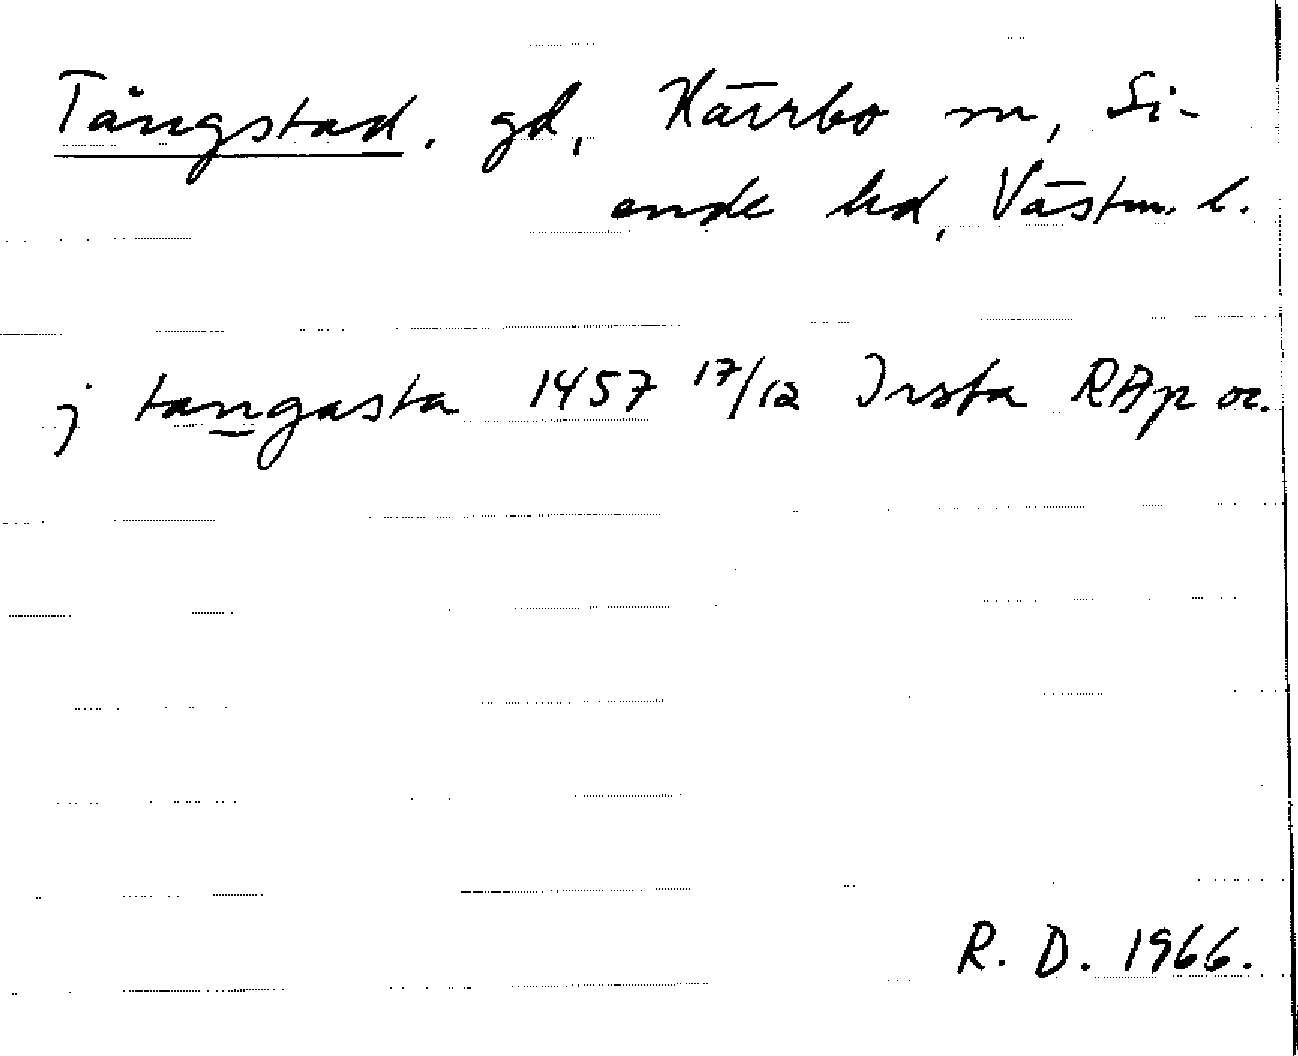 Tångstad. gd, Kärrbo sn, Si-
ende hd, Västm. l.
j tangasta 1457 17/12 Irsta RAp or.
R. D. 1966.